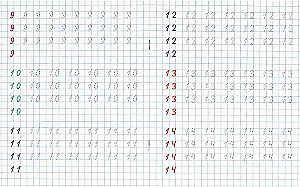 9 9 9 9 9 9 9 9 9
9 9 9 9 9 9 9 9 9
9 9 9 9 9 9 9 9 9
9
10 10 10 10 10 10 10
10 10 10 10 10 10 10
10 10 10 10 10 10 10
10
11 11 11 11 11 11 11
11 11 11 11 11 11 11
11 11 11 11 11 11 11
11
12 12 12 12 12 12 12
12 12 12 12 12 12 12
12 12 12 12 12 12 12
12
13 13 13 13 13 13 13
13 13 13 13 13 13 13
13 13 13 13 13 13 13
13
14 14 14 14 14 14 14
14 14 14 14 14 14 14
14 14 14 14 14 14 14
14